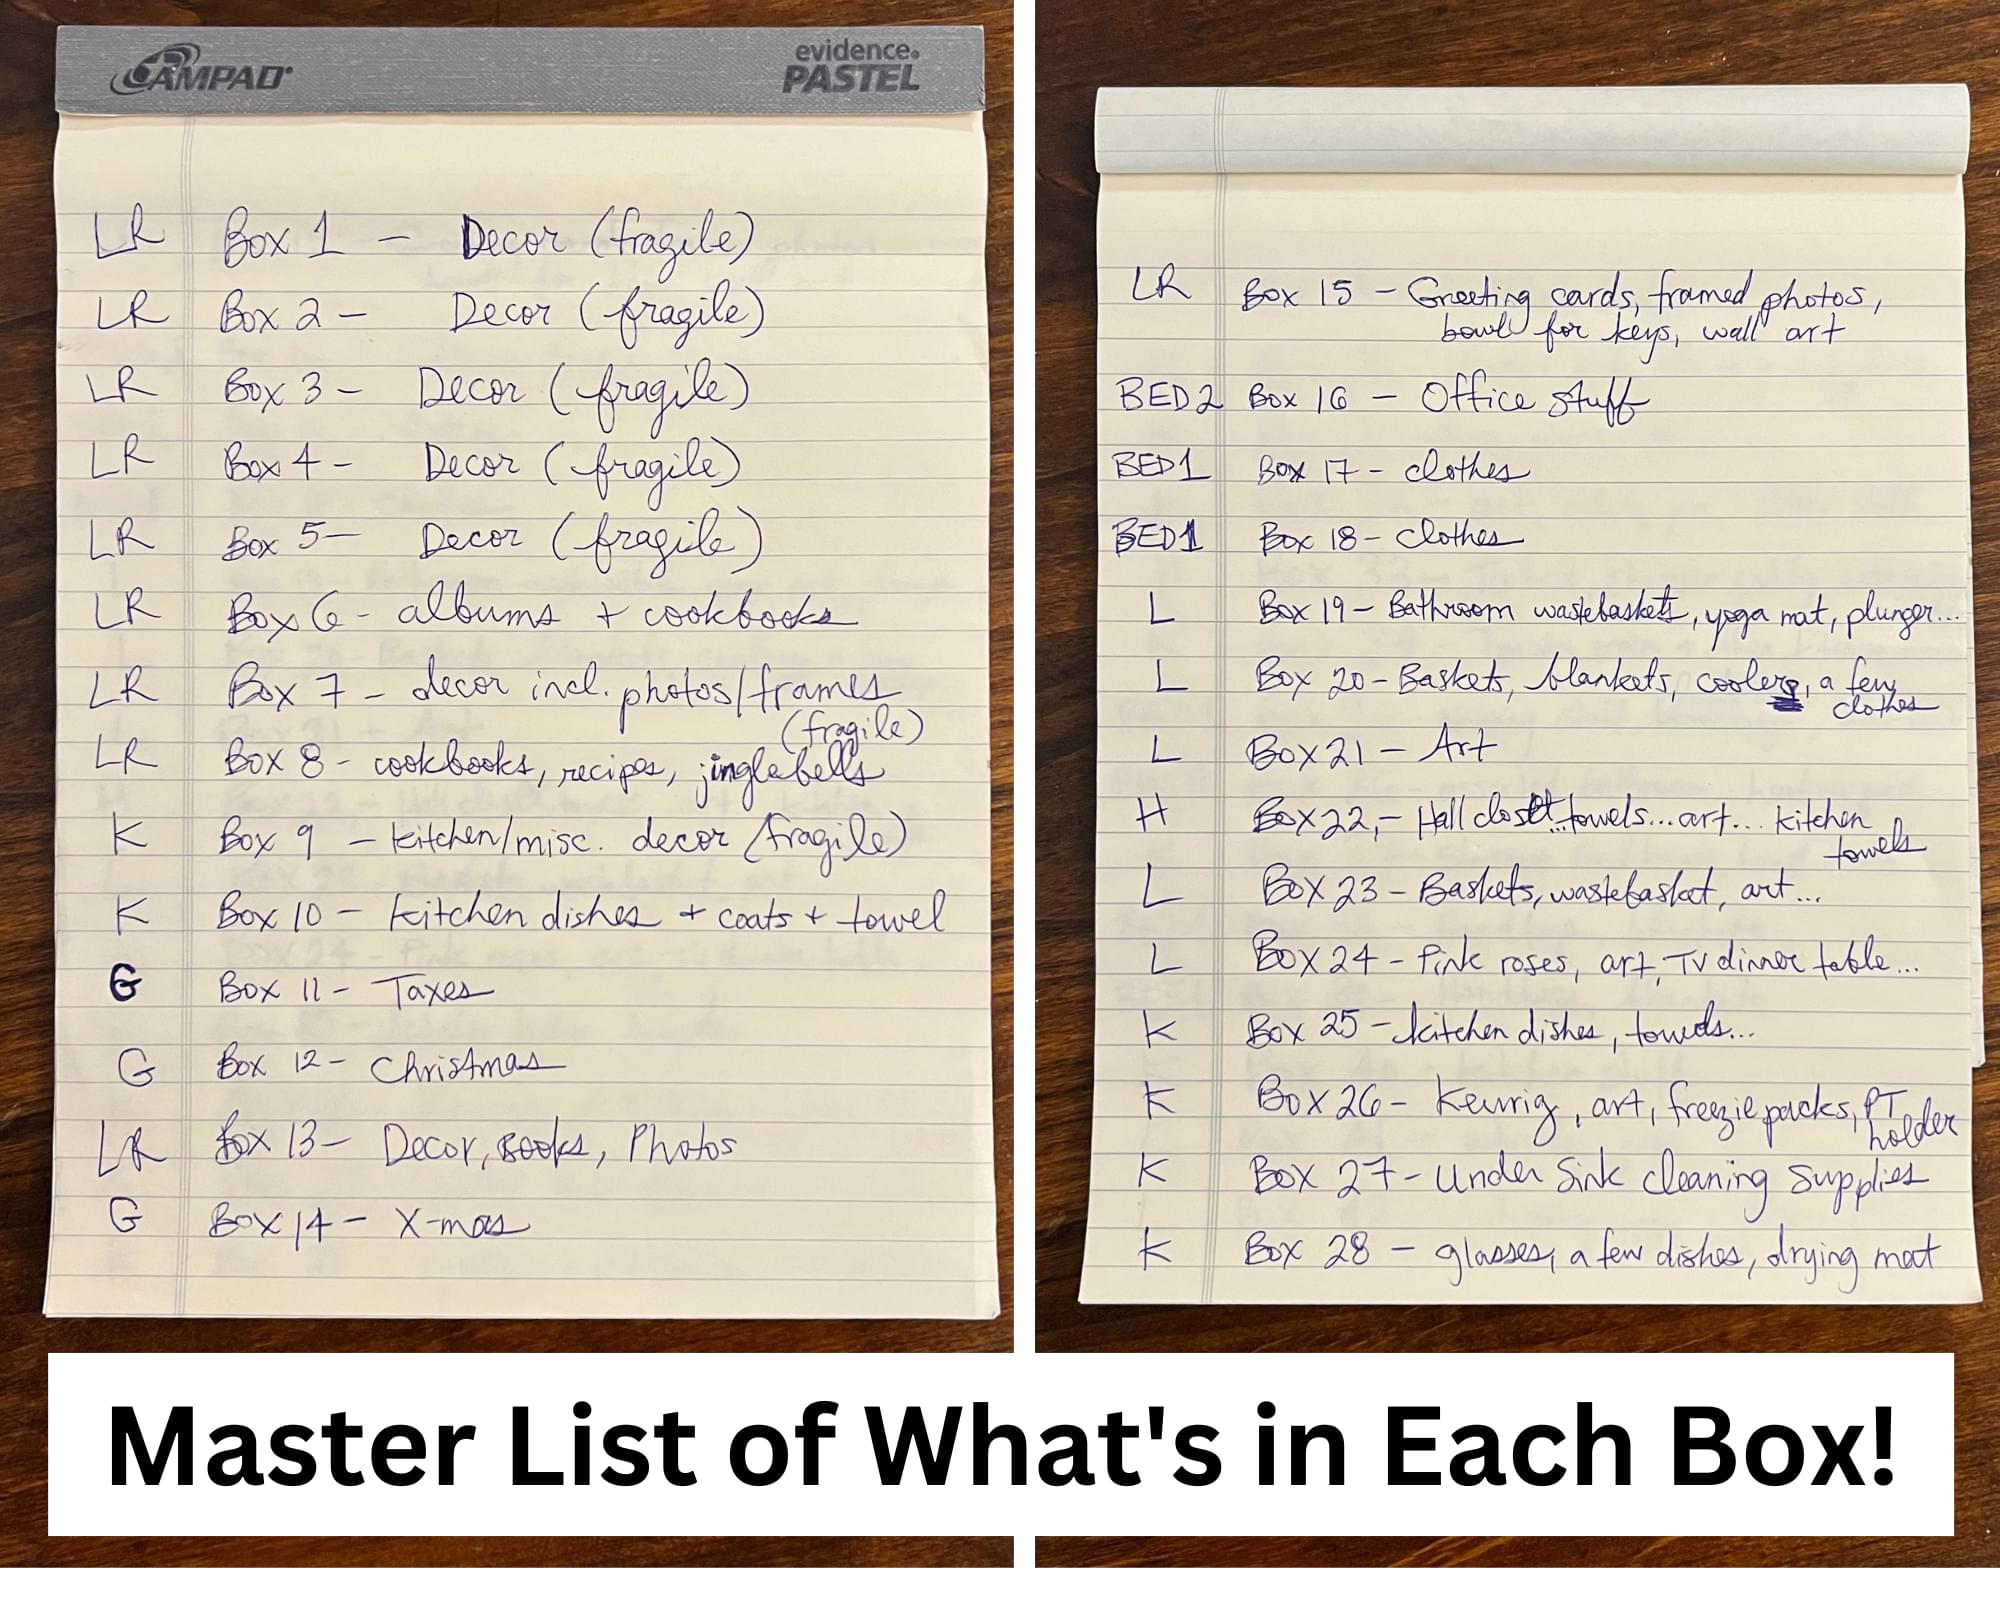 AMPAD
evidence.
PASTEL
LR Box 1 - Decor (fragile)
LR Box 2 - Decor (fragile)
LR Box 3 - Decor (fragile)
LR Box 4 - Decor (fragile)
LR Box 5 - Decor (fragile)
LR Box 6 - albums + cookbooks
LR Box 7 - decor incl. photos/frames
(fragile)
LR Box 8 - cookbooks, recipes, jinglebells
K Box 9 - kitchen/misc. decor (fragile)
K Box 10 - kitchen dishes + coats + towel
G Box 11 - Taxes
G Box 12 - Christmas
LR Box 13 - Decor, Books, Photos
G Box 14 - X-mas
LR Box 15 - Greeting cards, framed photos,
bowl for keys, wall art
BED2 Box 16 - Office stuff
BED1 Box 17 - clothes
BED1 Box 18 - clothes
L Box 19 - Bathroom wastebaskets, yoga mat, plunger...
L Box 20 - Baskets, blankets, coolers, a few
clothes
L Box 21 - Art
H Box 22, - Hall closet...towels...art... kitchen
towels
L Box 23 - Baskets, wastebasket, art...
L Box 24 - Pink roses, art, TV dinner table...
K Box 25 - kitchen dishes, towels...
K Box 26 - Keurig, art, freezie packs, PT
holder
K Box 27 - Under Sink cleaning supplies
K Box 28 - glasses, a few dishes, drying mat
Master List of What's in Each Box!